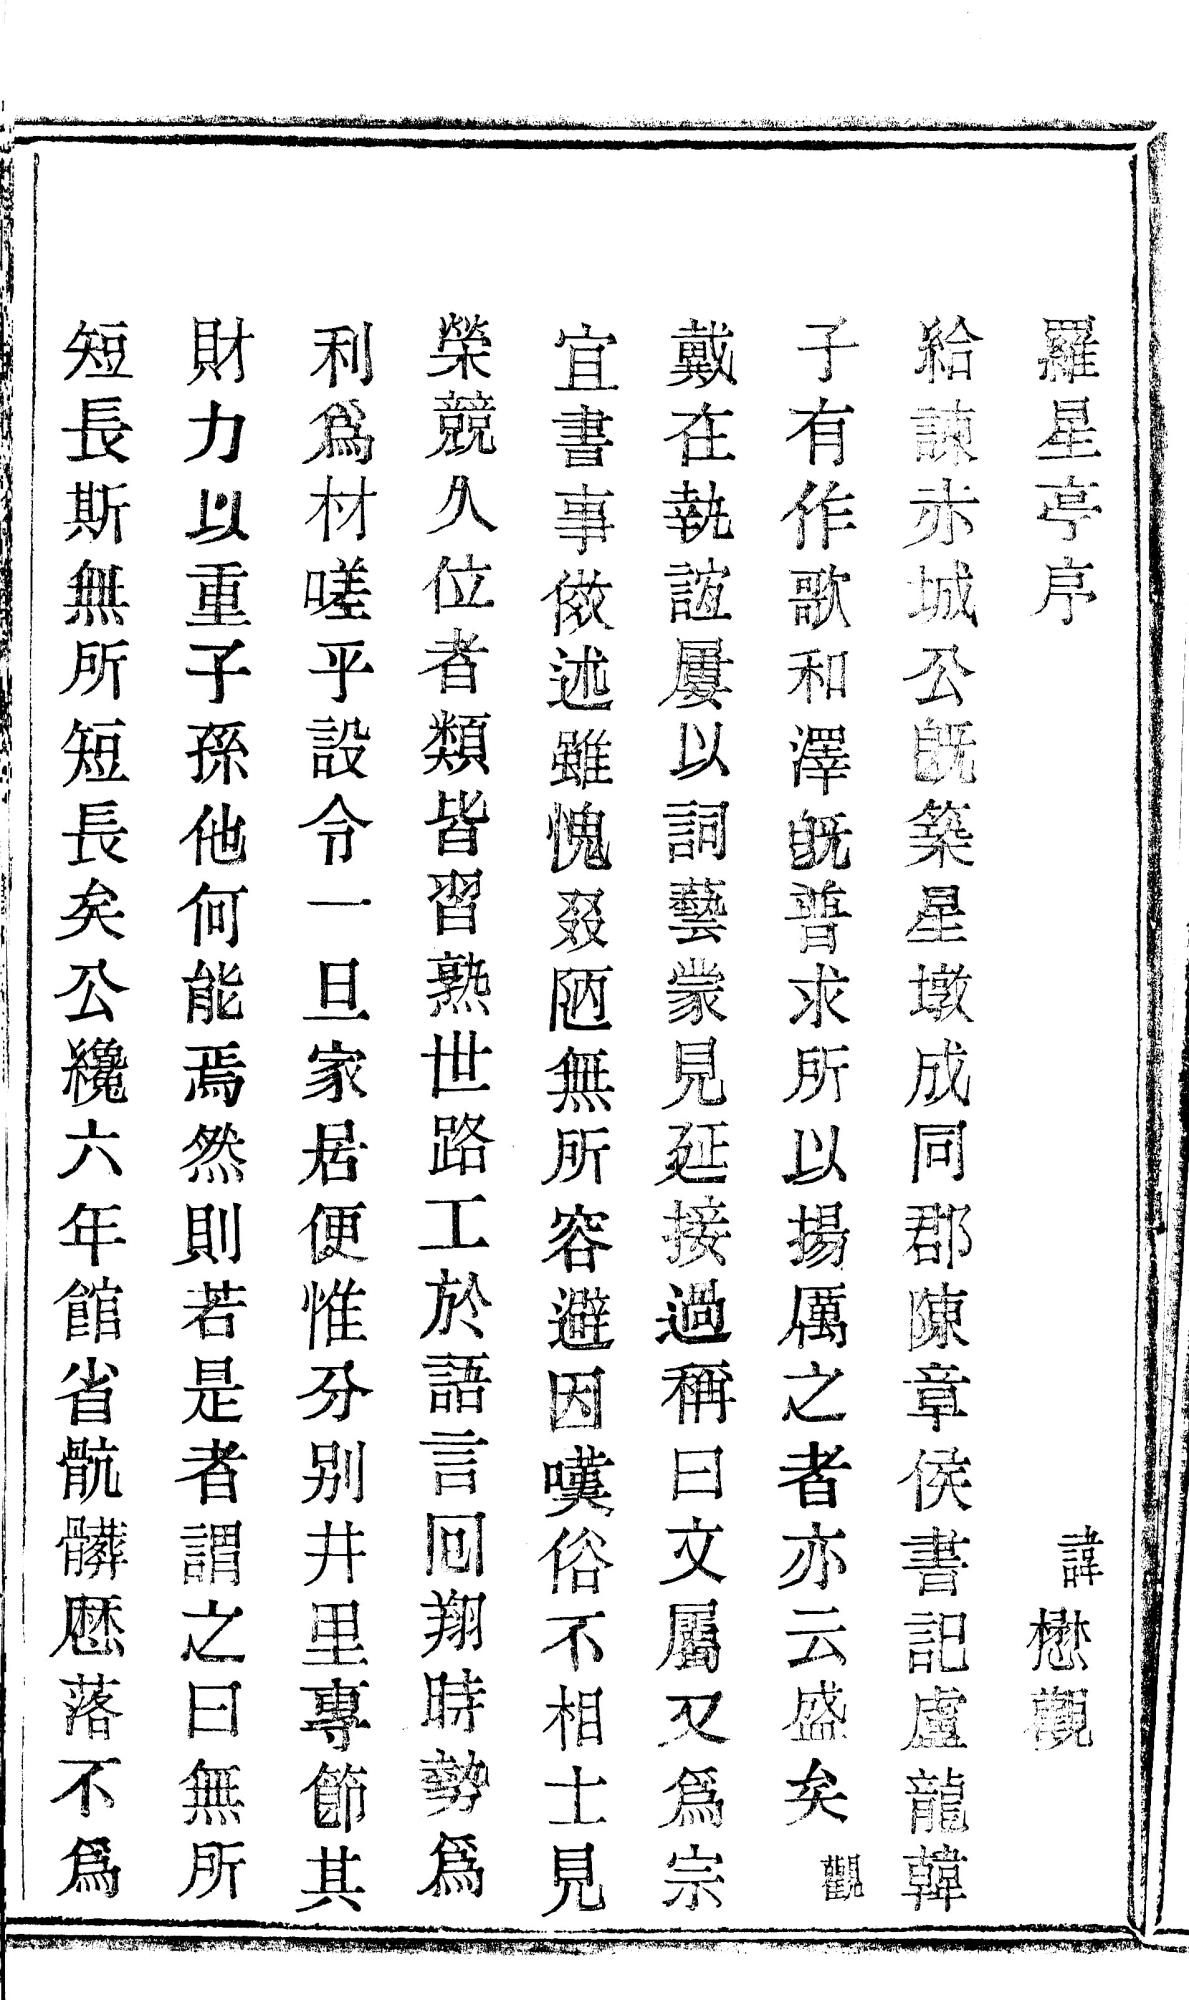 羅星亭序 諱懋觀
給諫赤城公旣築星墩成同郡陳章侯書記盧龍韓
子有作歌和澤旣普求所以揚厲之者亦云盛矣觀
戴在執誼屢以詞藝蒙見延接過稱曰文屬又爲宗
宜書事倣述雖愧叕陋無所容避因嘆俗不相士見
榮競久位者類皆習熟世路工於語言回翔時勢爲
利爲材嗟乎設令一旦家居便惟分别井里專節其
財力以重子孫他何能焉然則若是者謂之曰無所
短長斯無所短長矣公纔六年館省骯髒歷落不爲